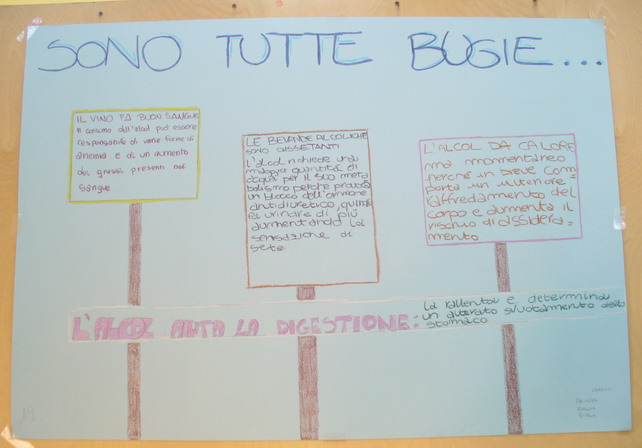 SONO TUTTE BUGIE...
IL VINO FA BUON SANGUE
Il consumo dell'alcol può essere
responsabile di varie forme di
anemia e di un aumento
dei grassi presenti nel
sangue
LE BEVANDE ALCOLICHE
SONO DISSETANTI
L'alcol richiede una
maggior quantità di
acqua per il suo meta
bolismo perchè provoca
un blocco dell'ormone
antidiuretico, quindi
fa urinare di più
aumentando la
sensazione di
sete
L'ALCOL DA CALORE
ma momentaneo
perché in breve com
porta un ulteriore
raffreddamento del
corpo e aumenta il
rischio di assidera=
mento
L'ALCOL AIUTA LA DIGESTIONE:
la rallenta e determina
un alterato svuotamento dello
stomaco